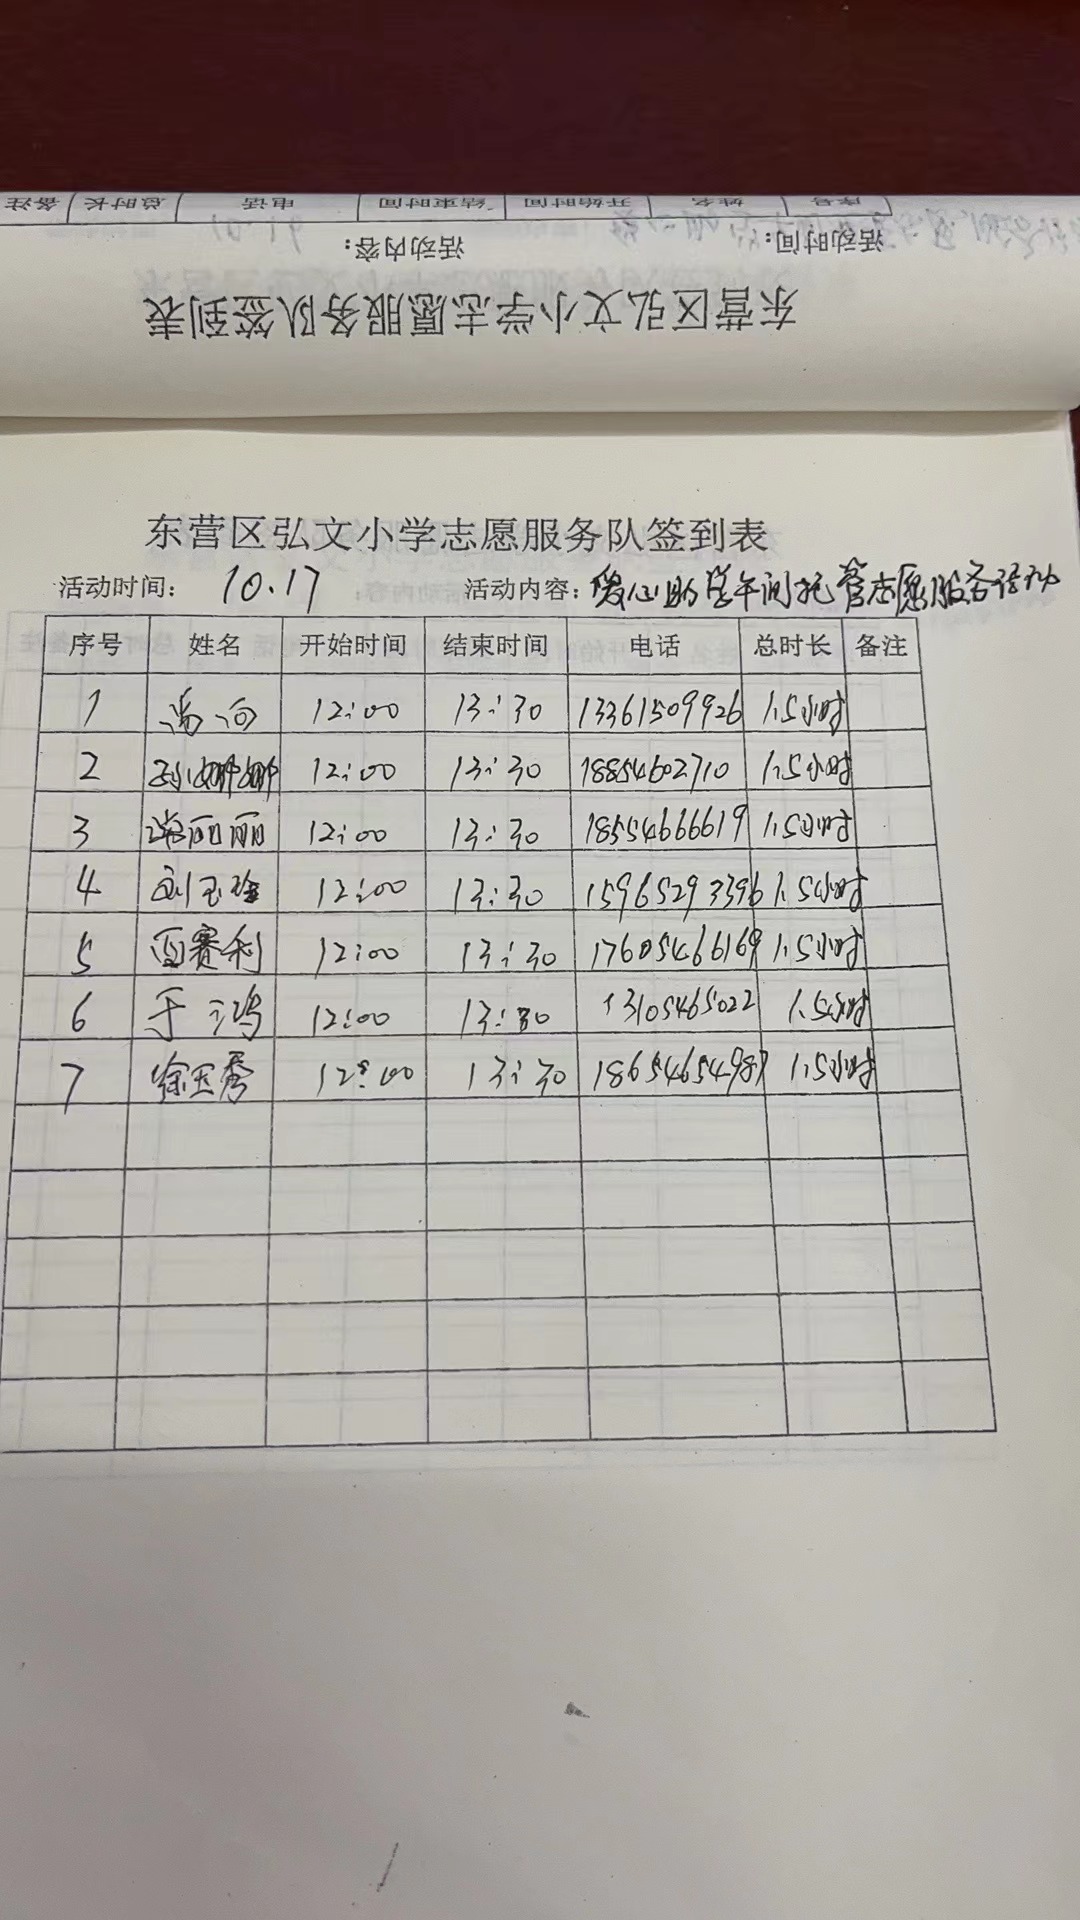 备注 总时长 电话 结束时间 开始时间 姓名 序号
活动时间： 活动内容：
东营区弘文小学志愿服务队签到表
东营区弘文小学志愿服务队签到表
活动时间： 10.17 活动内容：爱心助学午间托管志愿服务活动
序号 姓名 开始时间 结束时间 电话 总时长 备注
1 12:00 13:30 13361509926 1.5小时
2 孙娜娜 12:00 13:30 18854602710 1.5小时
3 丽丽 12:00 13:30 18554666619 1.5小时
4 刘玉 12:00 13:30 15965293396 1.5小时
5 赛利 12:00 13:30 17605466169 1.5小时
6 于鸿 12:00 13:30 13105465022 1.5小时
7 徐玉秀 12:00 13:30 18654654987 1.5小时